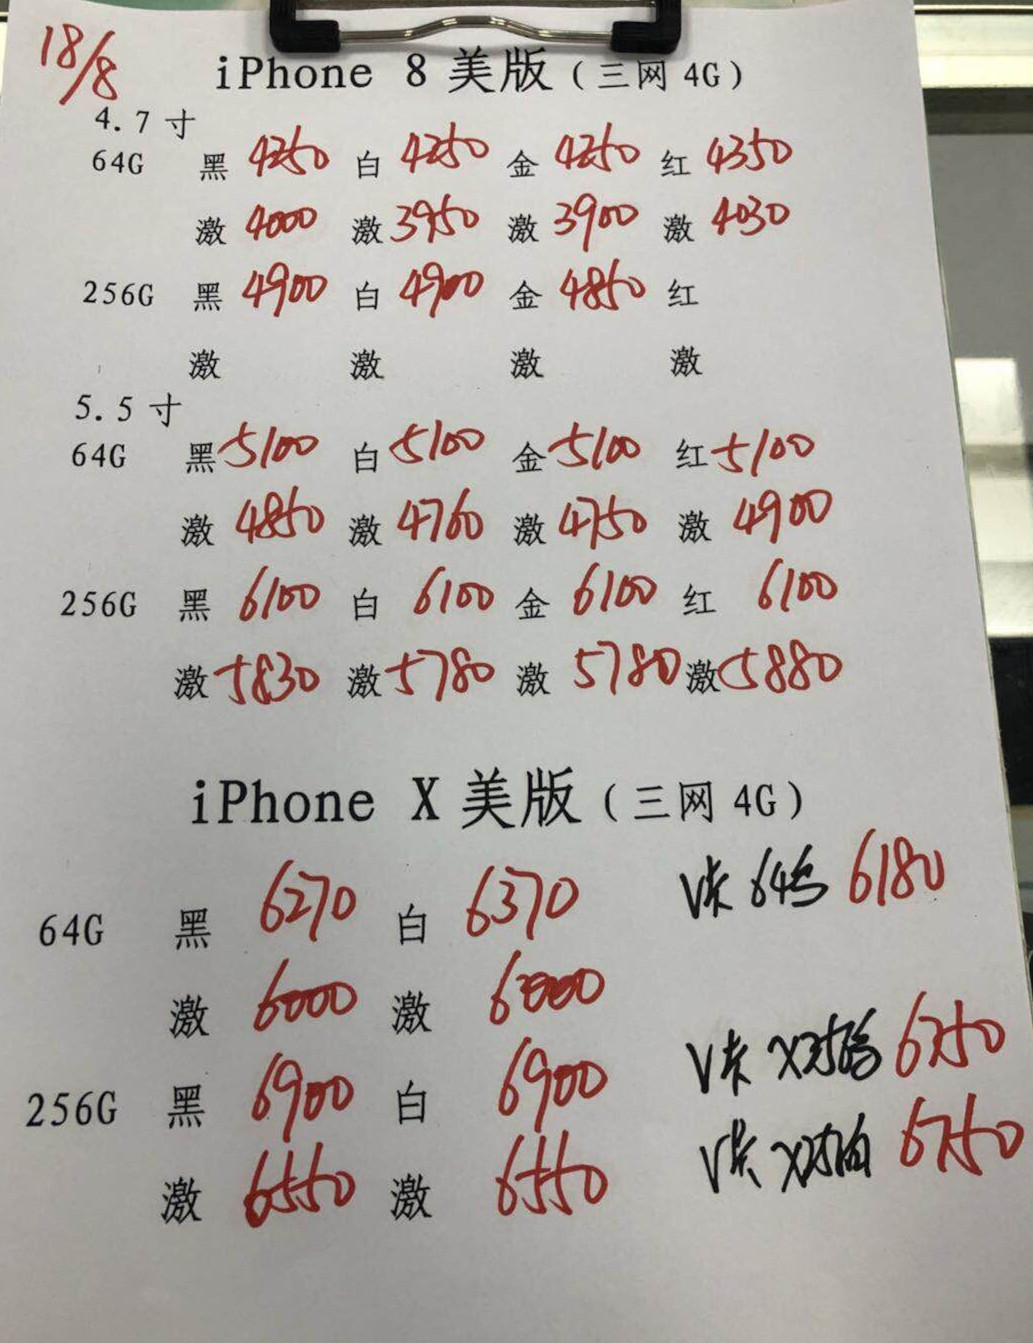 18/8
iPhone 8 美版（三网 4G）
4.7 寸
64G 黑 4250 白 4250 金 4250 红 4350
激 4000 激 3950 激 3900 激 4030
256G 黑 4900 白 4900 金 4850 红
激 激 激 激
5.5 寸
64G 黑 5100 白 5100 金 5100 红 5100
激 4850 激 4760 激 4750 激 4900
256G 黑 6100 白 6100 金 6100 红 6100
激 5830 激 5780 激 5780 激 5880
iPhone X 美版（三网 4G）
64G 黑 6270 白 6370 V卡 64 6180
激 6000 激 6000
256G 黑 6900 白 6900 V卡 X256 6750
激 6550 激 6550 V卡 X256白 6750